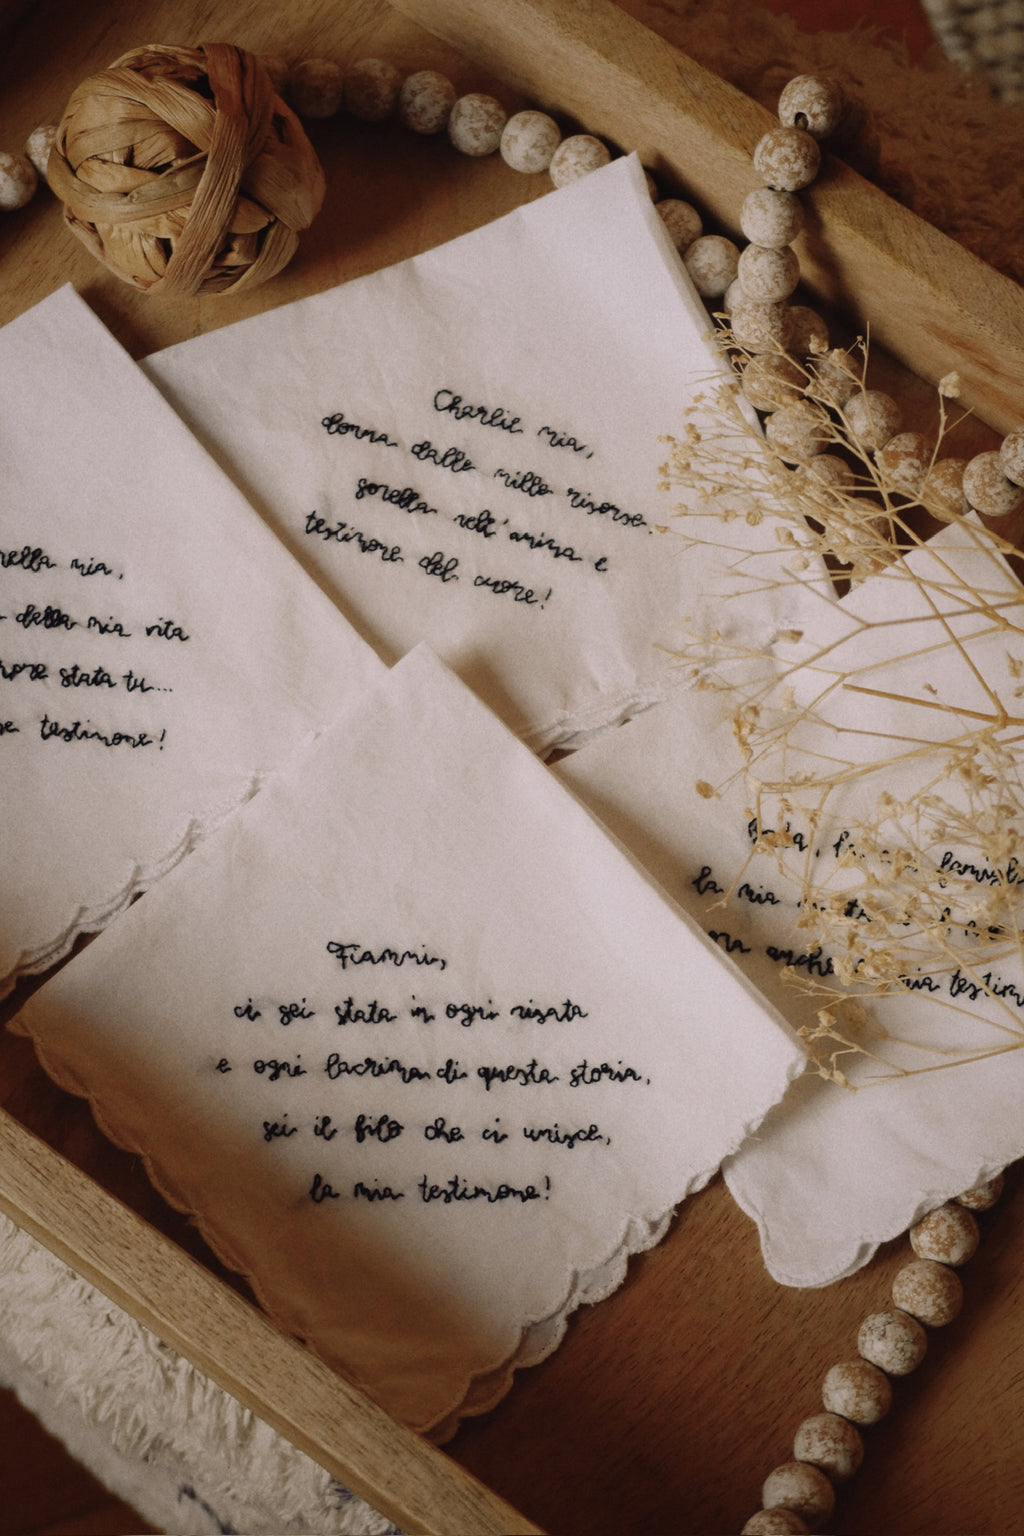 Charlie mia,
donna dalle mille risorse,
sorella nell'anima e
testimone del cuore!
mia,
della mia vita
stata tu...
testimone!
Fianni,
ci sei stata in ogni risata
e ogni lacrima di questa storia,
sei il filo che ci unisce,
la mia testimone!
la mia
anche mia